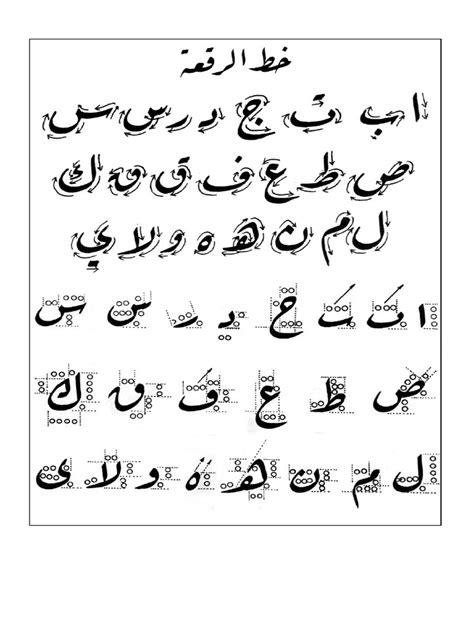 خط الرقعة
ا ب ث ج د ر س س
ص ط ع ف ق ق ك
ل م ن ه ه و لا ي
ا ب ث ج د ر س س
ض ط ع ف ق ك
ل م ن ه ه و لا ى